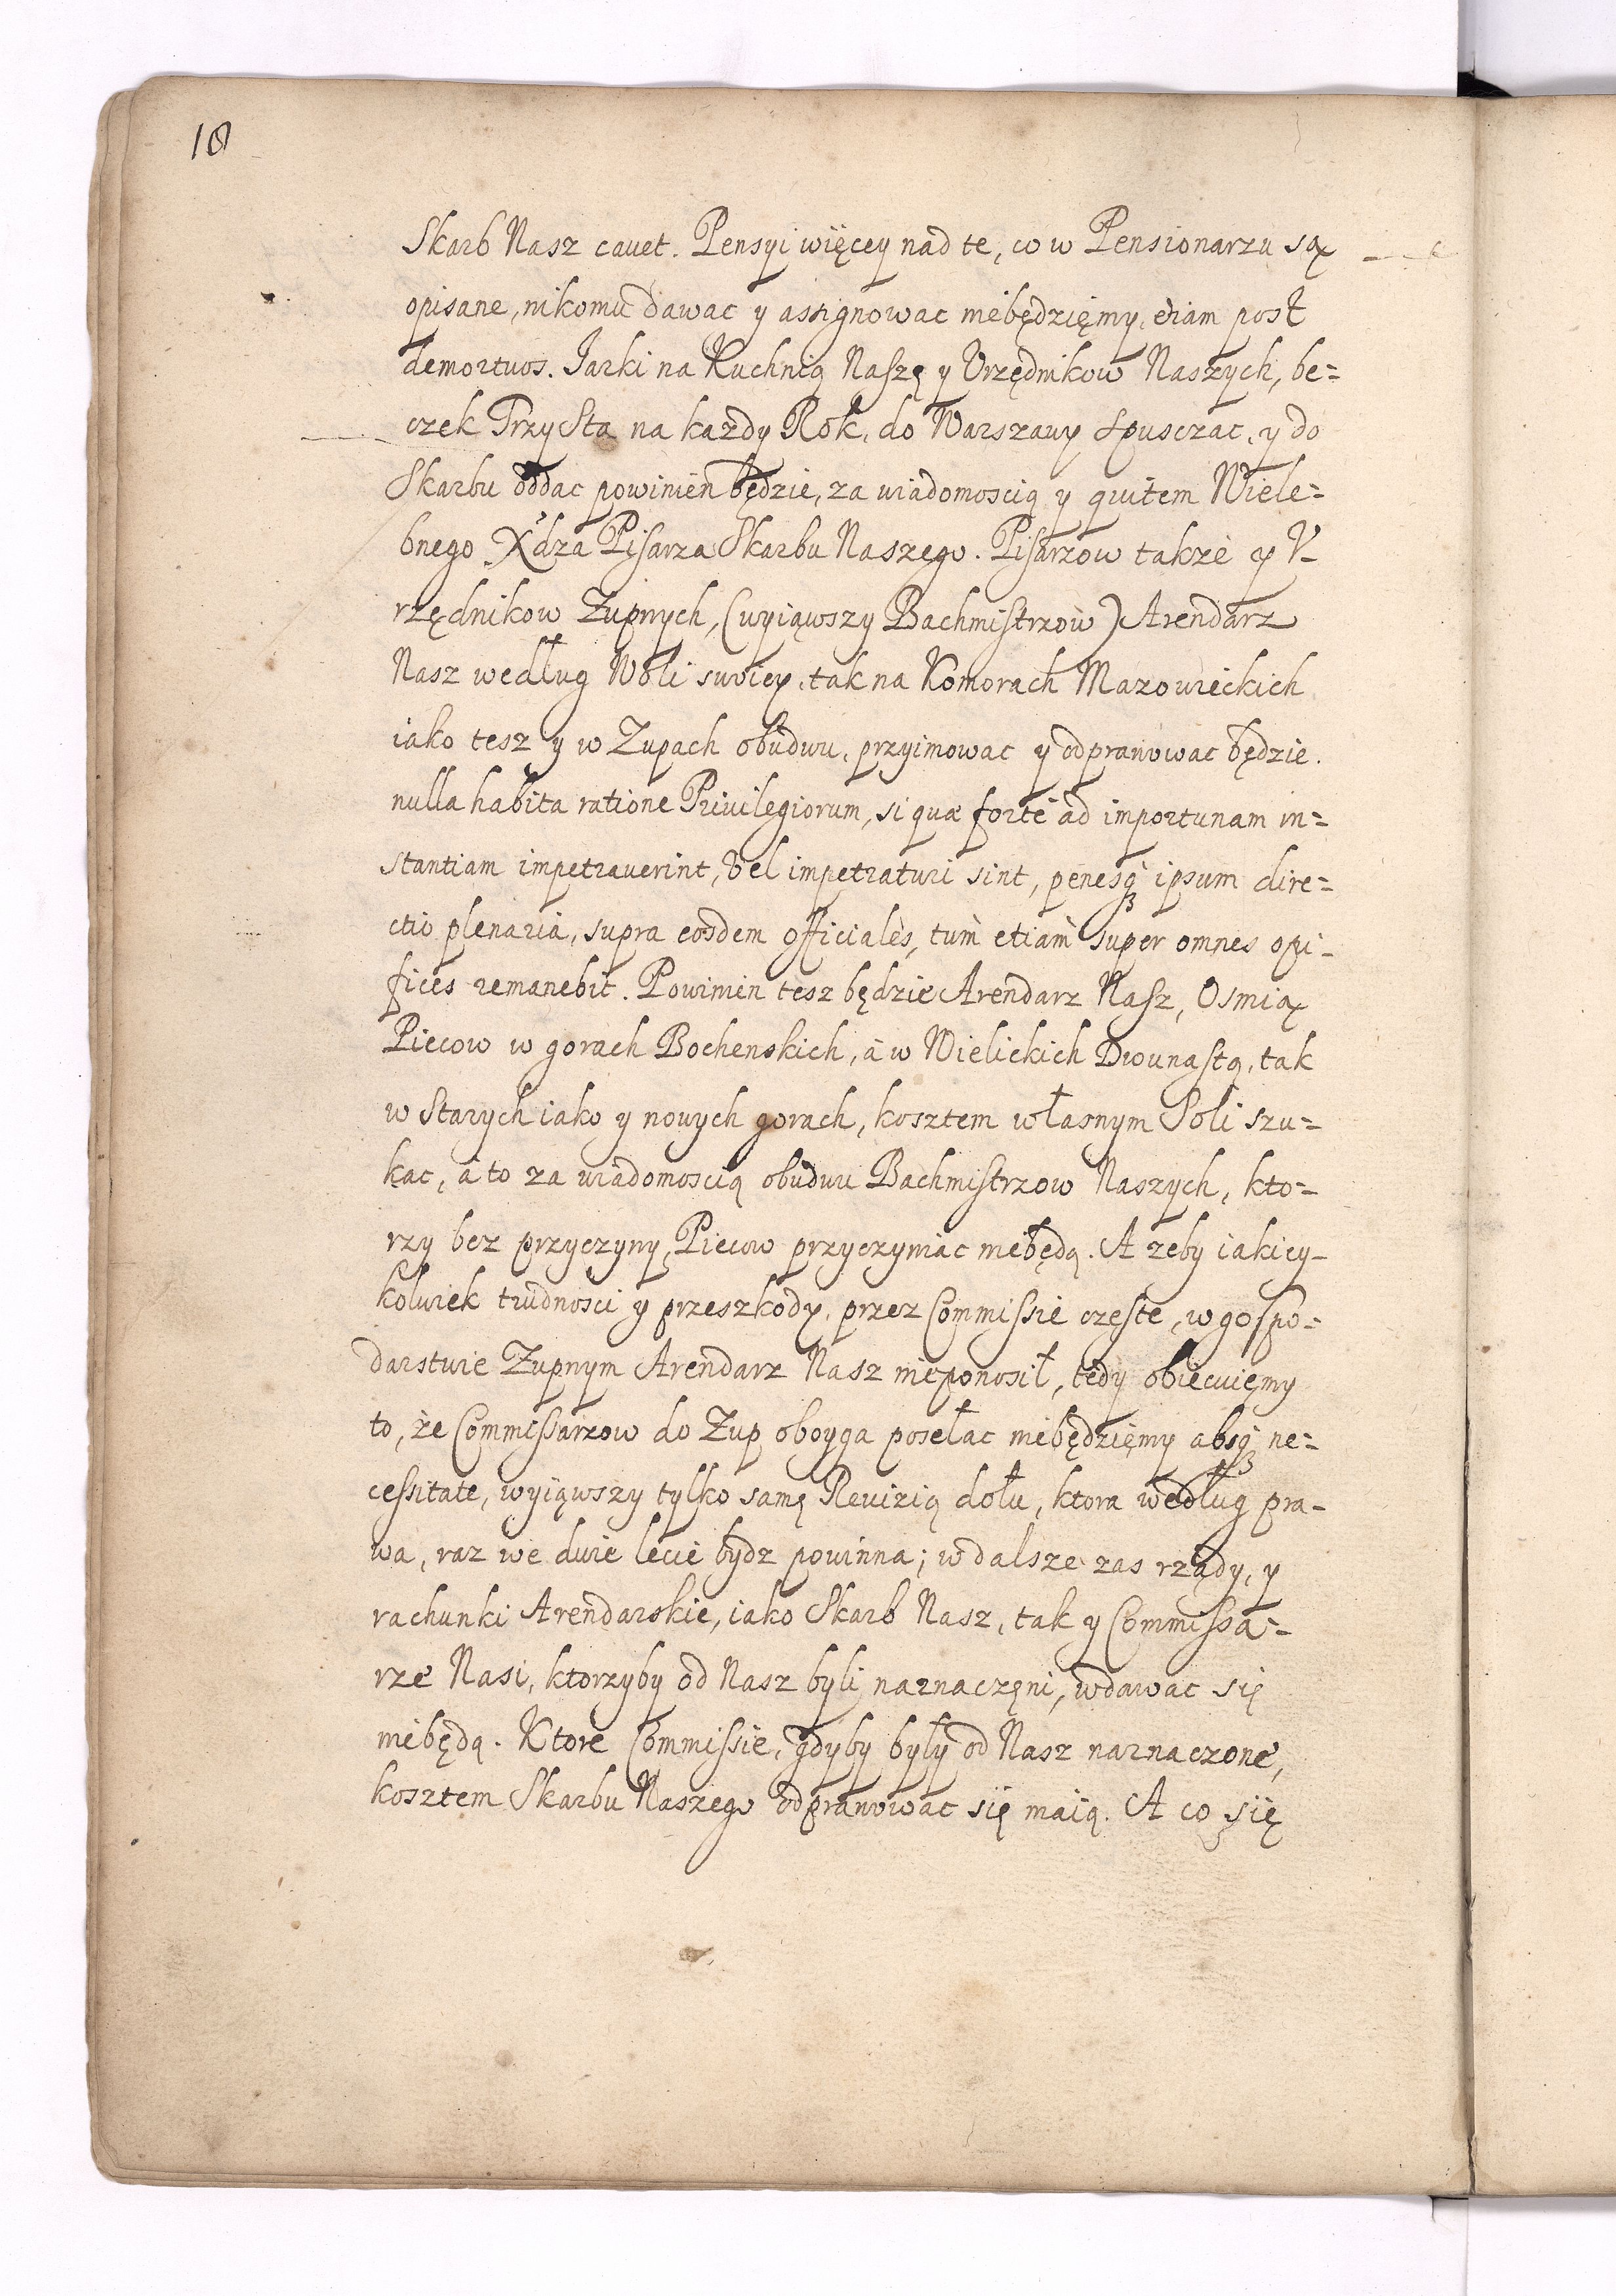 18
Skarb Nasz cavet. Pensyi więcey nad te, co w Pensionarzu są
opisane, nikomu dawac y assignowac niebędzięmy, etiam post
demortuos. Jarki na Kuchnią Naszę y Urzędnikow Naszych, be=
czek Trzysta na każdy Rok, do Warszawy spusczac, y do
Skarbu oddac powinien będzie, za wiadomoscią y quitem Wiele=
bnego X'dza Pisarza Skarbu Naszego. Pisarzow także y V-
rzędnikow Zupnych, (wyiąwszy Bachmistrzow) Arendarz
Nasz według Woli swoiey, tak na Komorach Mazowieckich
iako tesz y w Zupach obudwu, przyimowac y odprawowac będzie.
nulla habita ratione Privilegiorum, si quæ forte ad importunam in=
stantiam impetraverint, vel impetraturi sint, penesq3 ipsum dire=
ctio plenaria, supra eosdem officiales, tum etiam super omnes opi=
fices remanebit. Powinien tesz będzie Arendarz Nasz, Osmią
Piecow w gorach Bochenskich, a w Wielickich Dwunastą, tak
w Starych iako y nowych gorach, kosztem własnym Soli szu=
kac, a to za wiadomoscią obudwu Bachmistrzow Naszych, kto=
rzy bez przyczyny, Piecow przyczyniac niebędą. A zeby iakiey-
kolwiek trudnosci y przeszkody, przez Commissie częste, w gospo=
darstwie Zupnym Arendarz Nasz nieponosił, tedy obiecuięmy
to, że Commissarzow do Zup oboyga posełac niebędzięmy absq3 ne=
cessitate, wyiąwszy tylko samę Revizią dołu, ktora według pra=
wa, raz we dwie lecie bydz powinna; w dalsze zas rządy, y
rachunki Arendarskie, iako Skarb Nasz, tak y Commissa=
rze Nasi, ktorzyby od Nasz byli naznaczęni, wdawac się
niebędą. Ktore Commissie, gdyby były od Nasz naznaczone,
kosztem Skarbu Naszego odprawowac się maią. A co się